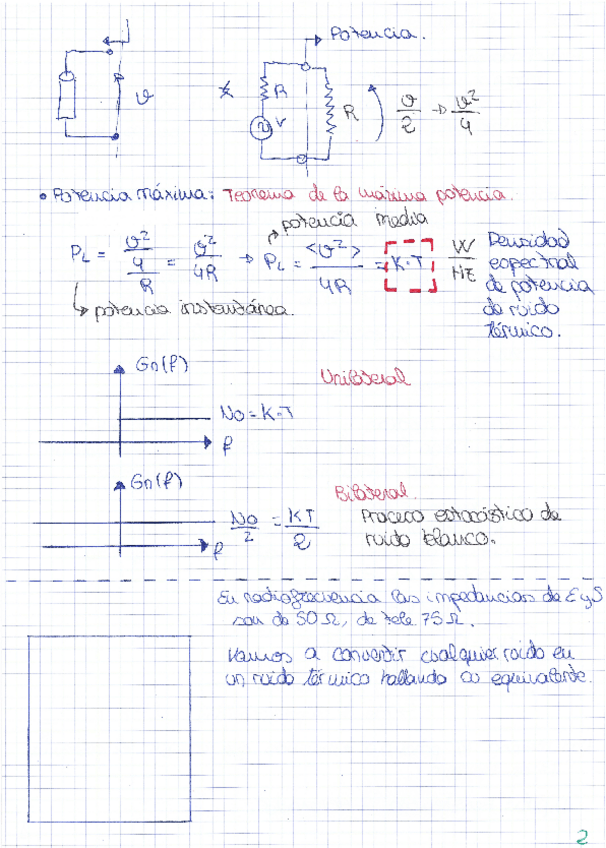 → Potencia.
v
*
R
V
R
v/2 → v²/4
• Potencia máxima: Teorema de la máxima potencia.
potencia media
P_L = (v²/4)/R = v²/4R → P_L = <v²>/4R = K·T W/Hz Densidad espectral de potencia de ruido térmico.
↳ potencia instantánea.
Gn(f)
Unilateral
No = K·T
f
Gn(f)
Bilateral.
No/2 = KT/2
Proceso estocástico de
ruido blanco.
f
En radiofrecuencia las impedancias de E y S
son de 50 Ω, de tele 75 Ω.
Vamos a convertir cualquier ruido en
un ruido térmico hallando su equivalente.
2